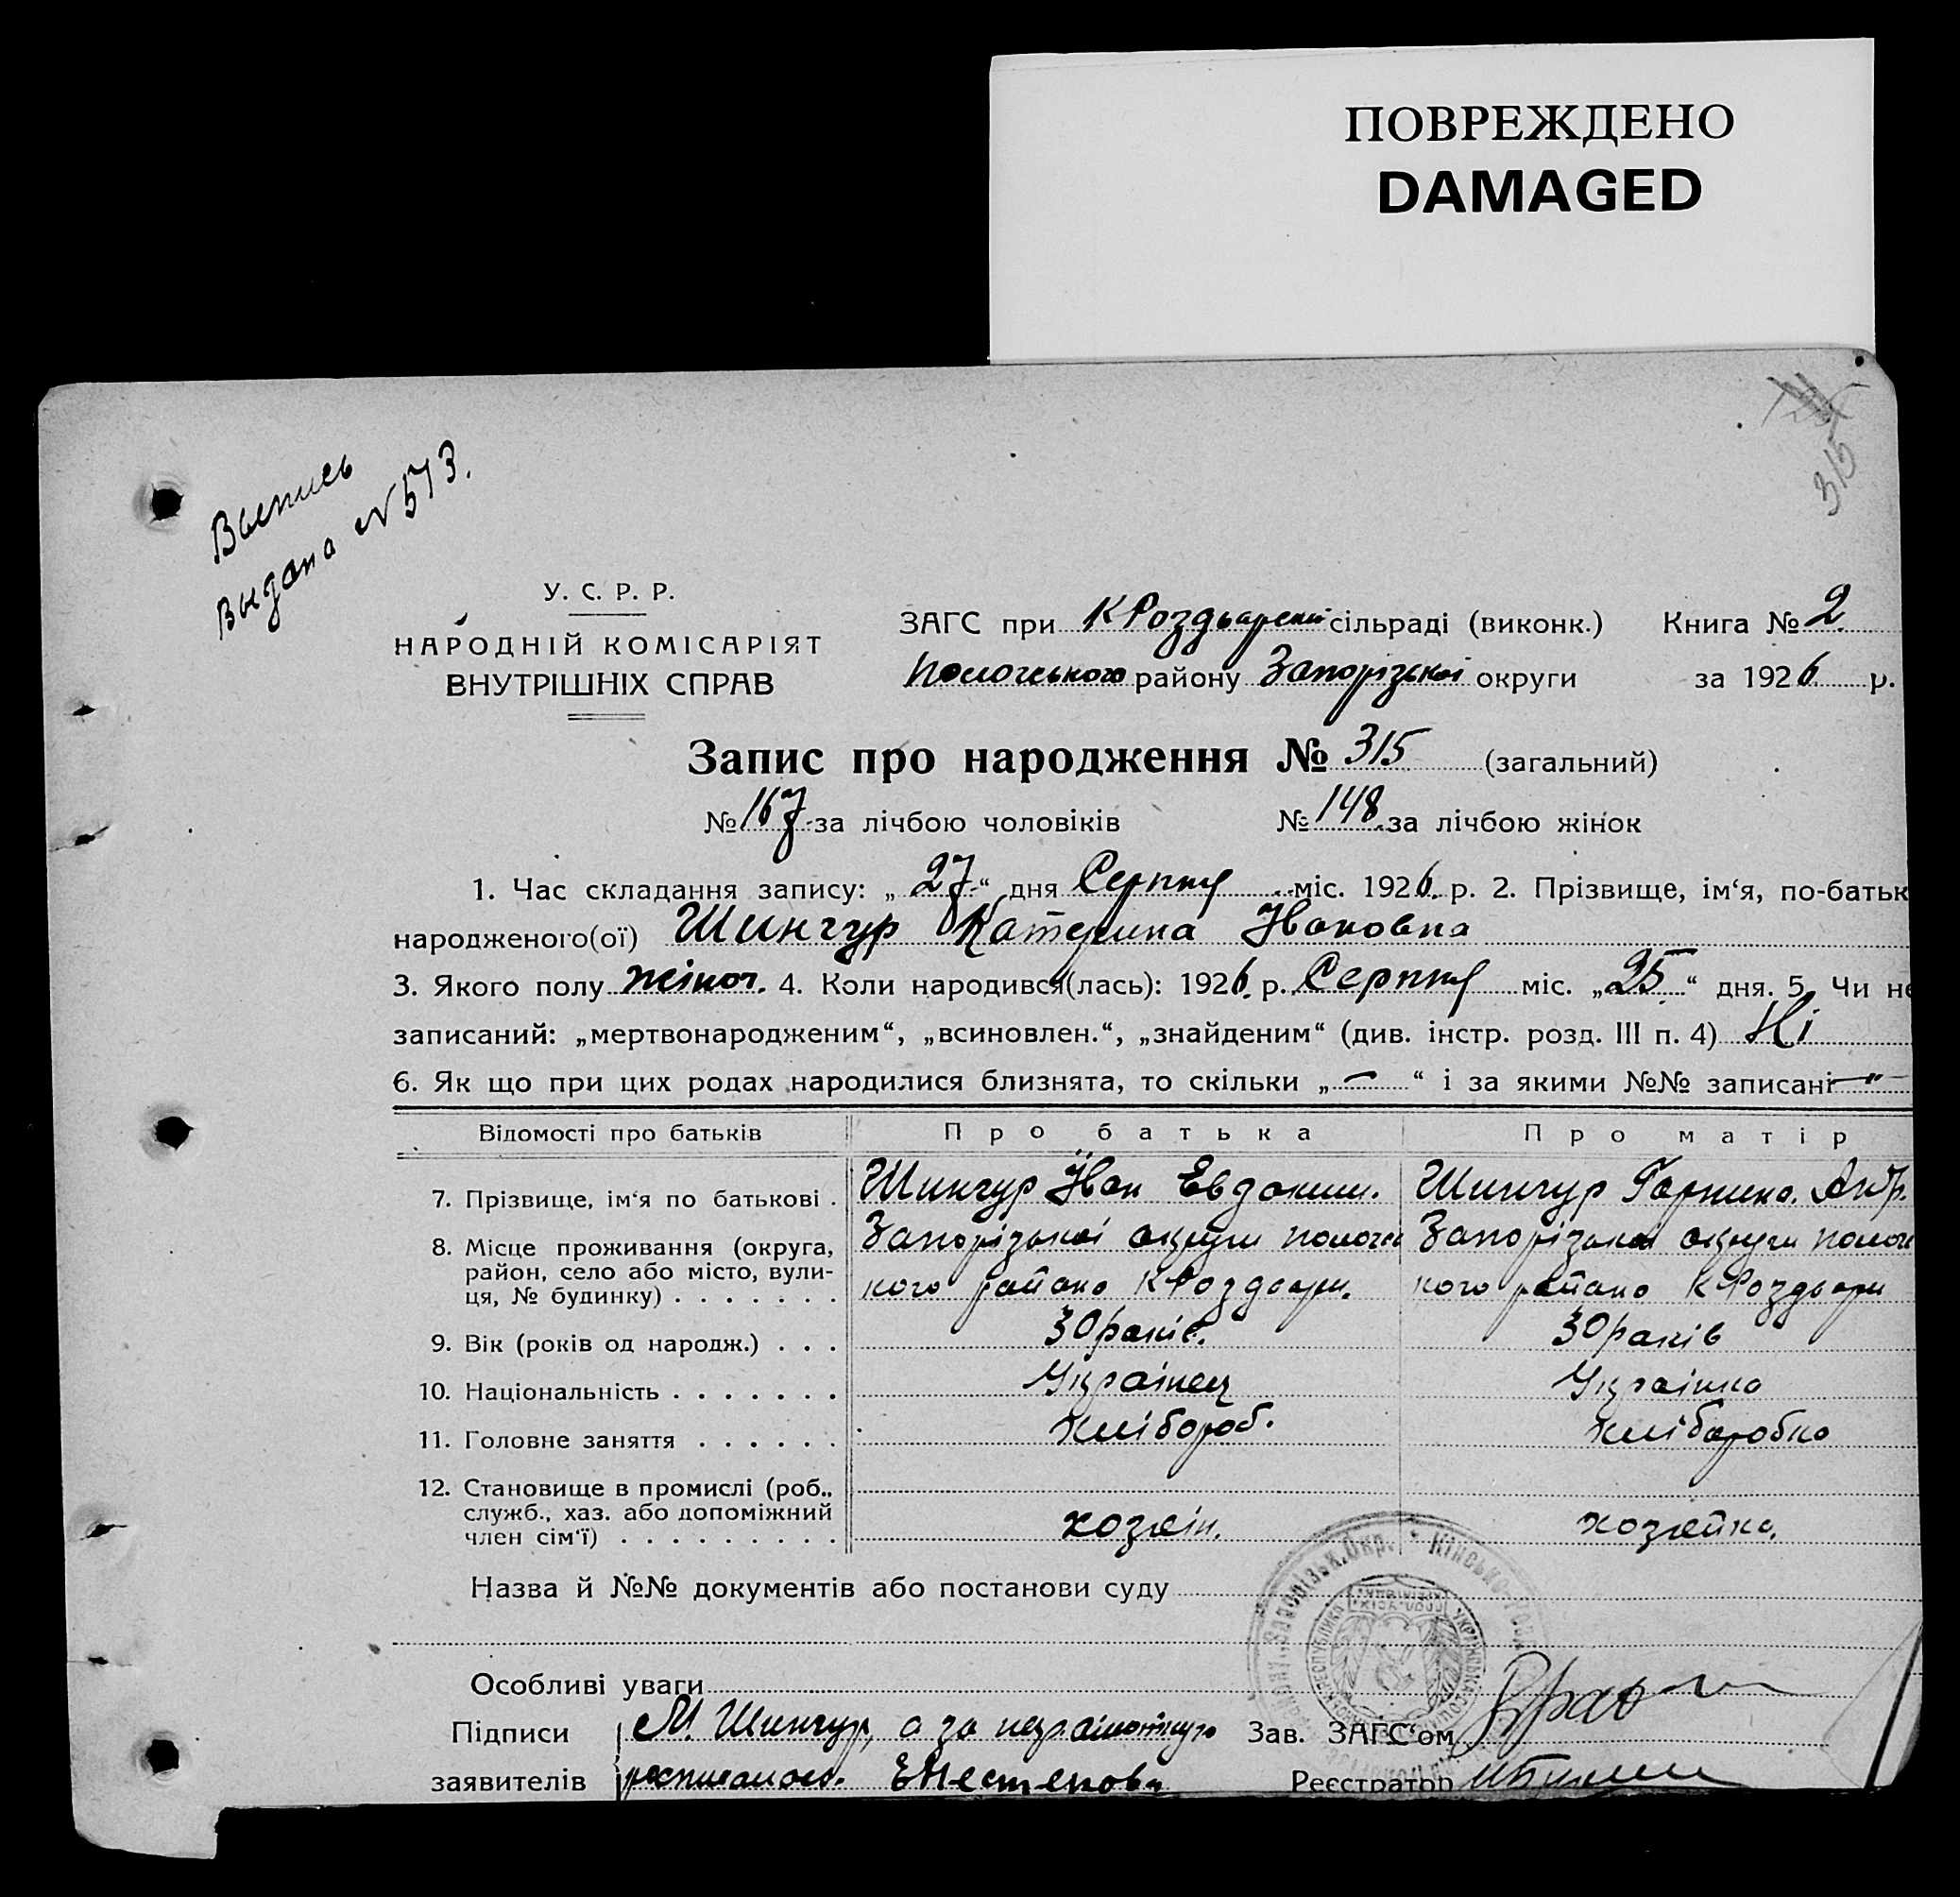 ПОВРЕЖДЕНО
DAMAGED
315
Выпись
выдана № 573.
У. С. Р. Р.
НАРОДНІЙ КОМІСАРІЯТ
ВНУТРІШНІХ СПРАВ
ЗАГС при К Роздорській сільраді (виконк.) Книга № 2
Пологського району Запорізької округи за 1926 р.
Запис про народження № 315 (загальний)
№ 167 за лічбою чоловіків № 148 за лічбою жінок
1. Час складання запису: „27“ дня Серпня міс. 1926 р. 2. Прізвище, ім‘я, по-батьк
народженого(ої) Шингур Катерина Івановна
3. Якого полу жіноч. 4. Коли народився(лась): 1926 р. Серпня міс. „25“ дня. 5. Чи не
записаний: „мертвонародженим“, „всиновлен.“, „знайденим“ (див. інстр. розд. III п. 4) Ні
6. Як що при цих родах народилися близнята, то скільки „—“ і за якими №№ записані —„—
Відомості про батьків Про батька Про матір
7. Прізвище, ім‘я по батькові . Шингур Іван Евдоким. Шингур Горпина. Антр.
8. Місце проживання (округа, район, село або місто, вулиця, № будинку) . . . . . . . Запорізької округи пологсь кого району К Роздори. Запорізької округи пологс кого району К Роздори
9. Вік (років од народж.) . . . 30 років. 30 років
10. Національність . . . . . . . Українец Українка
11. Головне заняття . . . . . . хлібороб. хліборобка
12. Становище в промислі (роб., служб., хаз. або допоміжний член сім‘ї) . . . . . . . . . хозяін. хозяйка.
Назва й №№ документів або постанови суду
Особливі уваги
Підписи М. Шингур, а за неграмотную Зав. ЗАГС‘ом
заявителів росписалась. Реєстратор